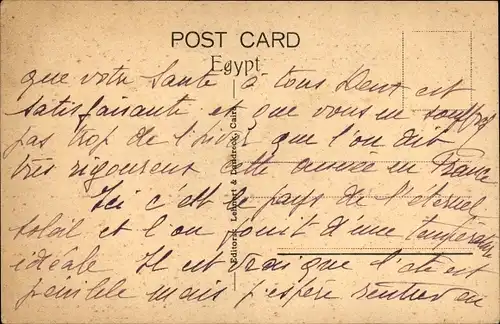 POST CARD
Egypt
que votre Santé à tous deux est
satisfaisante et que vous ne souffrez
pas trop de l'hiver que l'on dit
très rigoureux cette année en France
Ici c'est le pays de l'éternel
soleil et l'on jouit d'une température
idéale. Il est vrai que l'été est
pénible mais j'espère rentrer en
Editors Lehnert & Landrock, Cairo